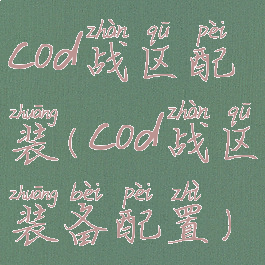 zhàn qū pèi
cod战区配
zhuāng zhàn qū
装(cod战区
zhuāng bèi pèi zhì
装备配置)